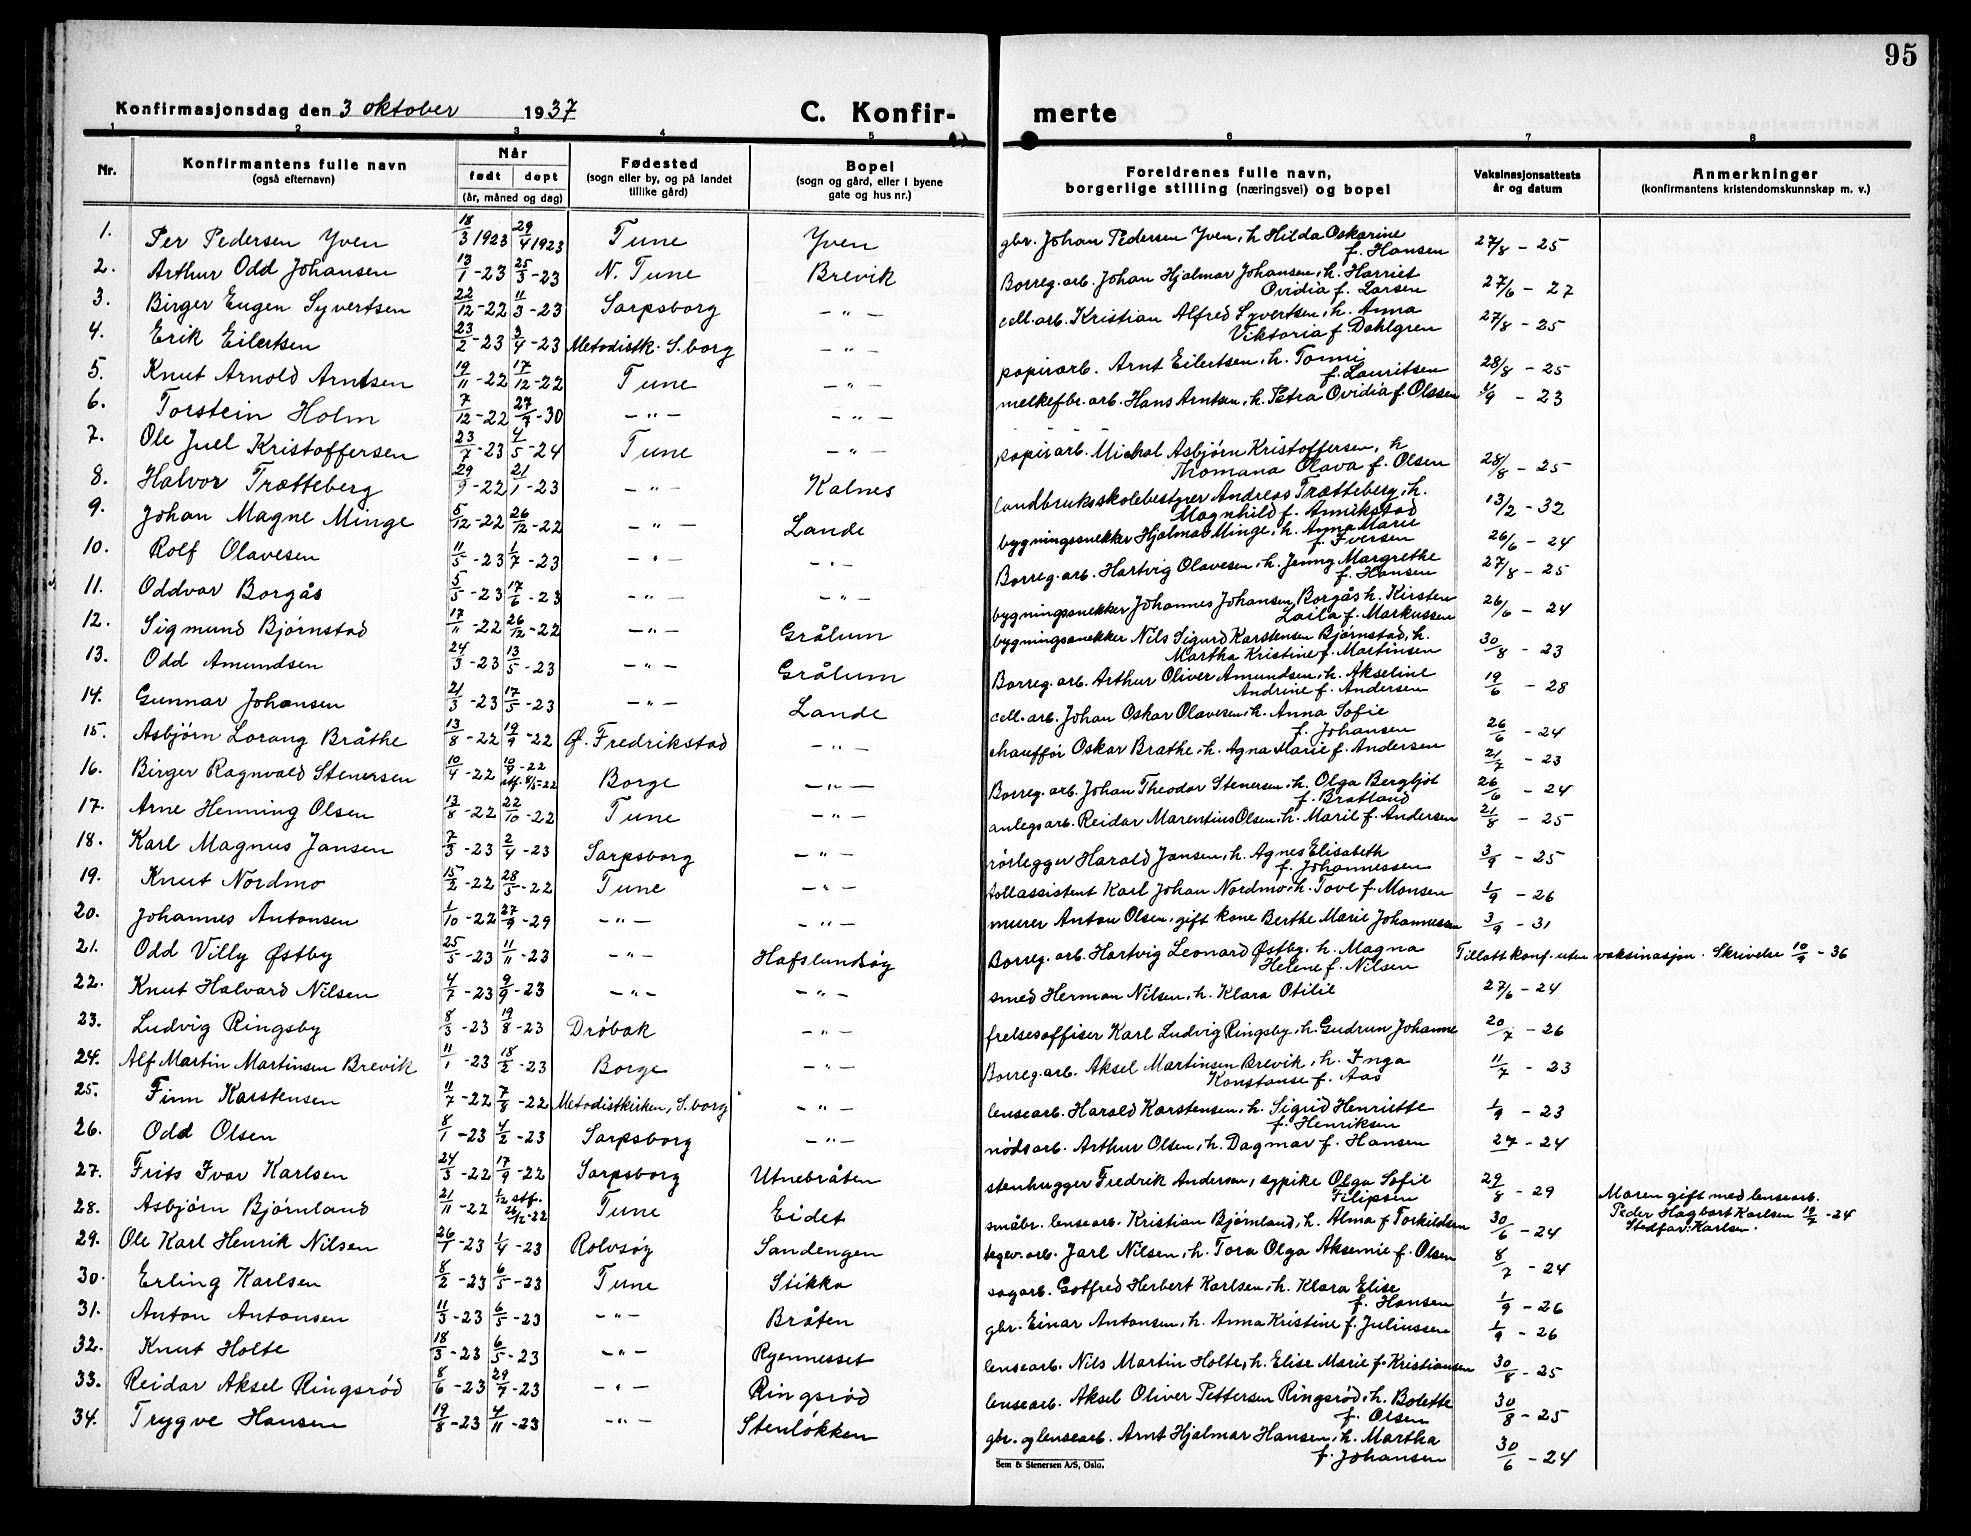 95
Konfirmasjonsdag den 3 oktober 1937
C. Konfir-
merte
1 2 3 4 5 6 7 8
Nr.
Konfirmantens fulle navn
(også efternavn)
Når
født døpt
(år, måned og dag)
Fødested
(sogn eller by, og på landet
tillike gård)
Bopel
(sogn og gård, eller i byene
gate og hus nr.)
Foreldrenes fulle navn,
borgerlige stilling (næringsvei) og bopel
Vaksinasjonsattests
år og datum
Anmerkninger
(konfirmantens kristendomskunnskap m. v.)
1. Per Pedersen Yven 18/3 1923 29/4 1923 Tune Yven gbr. Johan Pedersen Yven, h. Hilda Oskarine 27/8 - 25
f. Hansen
2. Arthur Odd Johansen 13/1 -23 25/3 -23 N. Tune Brevik Borreg. arb. Johan Hjalmar Johansen, h. Harriet 27/6 - 27
Ovidia f. Larsen
3. Birger Eugen Syvertsen 22/12 -22 11/3 -23 Sarpsborg - " - cell. arb. Kristian Alfred Syvertsen, h. Anna 27/8 - 25
Viktoria f. Dahlgren
4. Erik Eilertsen 23/2 -23 3/4 -23 Metodistk. S.borg - " - papirarb. Arnt Eilertsen, h. Tonni 28/8 - 25
f. Lauritsen
5. Knut Arnold Arntsen 19/11 -22 17/12 -22 Tune - " - melkefbr. arb. Hans Arntsen, h. Petra Ovidia f. Olssen 1/9 - 23
6. Torstein Holm 7/12 -22 27/7 -30 - " - - " -
7. Ole Juel Kristoffersen 23/7 -23 4/5 -24 Tune - " - papirarb. Michal Asbjørn Kristoffersen, h 28/8 - 25
Thomana Olava f. Olsen
8. Halvor Trætteberg 29/9 -22 21/1 -23 - " - Kalnes landbruksskolebestyrer Andreas Trætteberg, h. 13/2 - 32
Magnhild f. Annikstad
9. Johan Magne Minge 5/12 -22 26/12 -22 - " - Lande bygningssnekker Hjalmar Minge, h. Anna Marie 26/6 - 24
f. Iversen
10. Rolf Olavesen 11/5 -23 1/7 -23 - " - - " - Borreg. arb. Hartvig Olavesen, h. Jenny Margrethe 27/8 - 25
f. Hansen
11. Oddvar Borgås 5/5 -23 17/6 -23 - " - - " - bygningssnekker Johannes Johansen Borgås h. Kirsten 26/6 - 24
Laila f. Markussen
12. Sigmund Bjørnstad 17/11 -22 26/12 -22 - " - Grålum bygningssnekker Nils Sigurd Karstensen Bjørnstad, h. 30/8 - 23
Martha Kristine f. Martinsen
13. Odd Amundsen 24/3 -23 13/5 -23 - " - Grålum Borreg. arb. Arthur Oliver Amundsen, h. Akseline 19/6 - 28
Andrine f. Andersen
14. Gunnar Johansen 21/3 -23 17/5 -23 - " - Lande cell. arb. Johan Oskar Olavesen, h. Anna Sofie 26/6 - 24
f. Johansen
15. Asbjørn Lorang Bråthe 13/8 -22 19/9 -22 Ø. Fredrikstad - " - chauffør Oskar Bråthe, h. Agna Marie f. Andersen 21/7 - 23
16. Birger Ragnvald Stenersen 10/4 -22 10/9 -22 Borge - " - Borreg. arb. Johan Theodor Stenersen, h. Olga Bergljot 26/6 - 24
f. Bratland
17. Arne Henning Olsen 13/8 -22 22/10 -22 Tune - " - anlegsarb. Reidar Marentius Olsen, h. Marie f. Andersen 21/8 - 25
18. Karl Magnus Jansen 7/3 -23 2/4 -23 Sarpsborg - " - rørlegger Harald Jansen, h. Agnes Elisabeth 3/9 - 25
f. Johannessen
19. Knut Nordmo 15/2 -22 28/5 -22 Tune - " - tollassistent Karl Johan Nordmo, h. Tove f. Monsen 1/9 - 26
20. Johannes Antonsen 1/10 -22 27/9 -29 - " - - " - murer Anton Olsen, gift kone Berthe Marie Johannessen 3/9 - 31
21. Odd Villy Østby 25/5 -23 11/11 -23 - " - Hafslundsøy Borreg. arb. Hartvig Leonard Østby, h. Magna Tillatt konf. uten vaksinasjon. Skrivelse 10/9 - 36
Helene f. Nilsen
22. Knut Halvard Nilsen 4/7 -23 9/9 -23 - " - - " - smed Herman Nilsen, h. Klara Otilie 27/6 - 24
23. Ludvig Ringsby 8/3 -23 19/8 -23 Drøbak - " - frelsesoffiser Karl Ludvig Ringsby, h. Gudrun Johanne 20/7 - 26
24. Alf Martin Martinsen Brevik 11/1 -23 18/2 -23 Borge - " - Borreg. arb. Aksel Martinsen Brevik, h. Inga 11/7 - 23
Konstanse f. Aas
25. Finn Karstensen 11/7 -22 7/8 -22 Metodistkirken, S.borg - " - lensearb. Harald Karstensen, h. Sigrid Henriette 1/9 - 23
f. Henriksen
26. Odd Olsen 8/1 -23 4/2 -23 Sarpsborg - " - nødsarb. Arthur Olsen, h. Dagmar f. Hansen 27 - 24
27. Frits Ivar Karlsen 24/3 -22 17/9 -22 Sarpsborg Utnebråten stenhugger Fredrik Anderson, sypike Olga Sofie 29/8 - 29 Moren gift med lensearb.
Filipsen Peder Hagbart Karlsen 19/7 - 24
Stedfar: Karlsen.
28. Asbjørn Bjørnland 21/11 -22 1/12 stf. 26/12 -22 Tune Eidet småbr. lensearb. Kristian Bjørnland, h. Alma f Torkildsen 30/6 - 24
29. Ole Karl Henrik Nilsen 26/1 -23 1/4 -23 Rolvsøy Sandengen arb. Jarl Nilsen, h. Tora Olga Aksemie f. Olsen 8/7 - 24
30. Erling Karlsen 8/2 -23 6/5 -23 Tune Stikka sagarb. Gotfred Herbert Karlsen, h. Klara Elise 1/9 - 26
f. Hansen
31. Anton Antonsen 11/3 -23 6/5 -23 - " - Bråten gbr. Einar Antonsen, h. Anna Kristine f. Juliussen 1/9 - 26
32. Knut Holte 18/3 -23 6/5 -23 - " - Ryennesset lensearb. Nils Martin Holte, h. Elise Marie f. Kristiansen 30/8 - 25
33. Reidar Aksel Ringsrød 8/6 -23 29/7 -23 - " - Ringsrød lensearb. Aksel Oliver Pettersen Ringsrød, h. Bolette 30/8 - 25
f. Olsen
34. Trygve Hansen 19/8 -23 4/11 -23 - " - Stenløkken gbr. og lensearb. Arnt Hjalmar Hansen, h. Martha 30/6 - 24
f. Johansen
Sem & Stenersen A/S, Oslo.